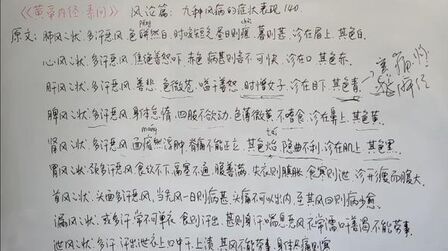 《黄帝内经·素问》 风论篇：九种风病的症状表现 140
原文：肺风之状，多汗恶风，色皏然白，时咳短气，昼日则瘥，暮则甚，诊在眉上，其色白。
心风之状，多汗恶风，焦绝善怒吓，赤色，病甚则言不可快，诊在口，其色赤。
肝风之状，多汗恶风，善悲，色微苍，嗌干善怒，时憎女子，诊在目下，其色青。
脾风之状，多汗恶风，身体怠惰，四肢不欲动，色薄微黄，不嗜食，诊在鼻上，其色黄。
肾风之状，多汗恶风，面痝然浮肿，脊痛不能正立，其色炲，隐曲不利，诊在肌上，其色黑。
胃风之状，颈多汗恶风，食饮不下，膈塞不通，腹善满，失衣则䐜胀，食寒则泄，诊形瘦而腹大。
首风之状，头面多汗恶风，当先风一日则病甚，头痛不可以出内，至其风日则病少愈。
漏风之状，或多汗，常不可单衣，食则汗出，甚则身汗，喘息恶风，衣常濡，口干善渴，不能劳事。
泄风之状，多汗，汗出泄衣上，口中干，上渍，其风不能劳事，身体尽痛则寒